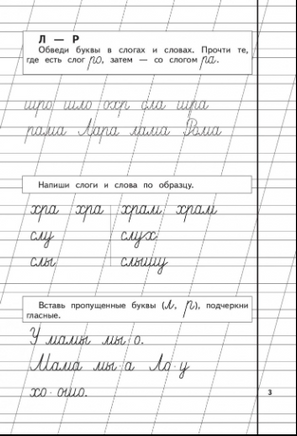 Л — Р
Обведи буквы в слогах и словах. Прочти те,
где есть слог ро, затем — со слогом ра.
рама Лара лама Рома
Напиши слоги и слова по образцу.
хра хра храм храм
слу слух
слы слышу
Вставь пропущенные буквы (л, р), подчеркни
гласные.
У мамы мы·о.
Мама мы·а Ла·у
хо·ошо.
3